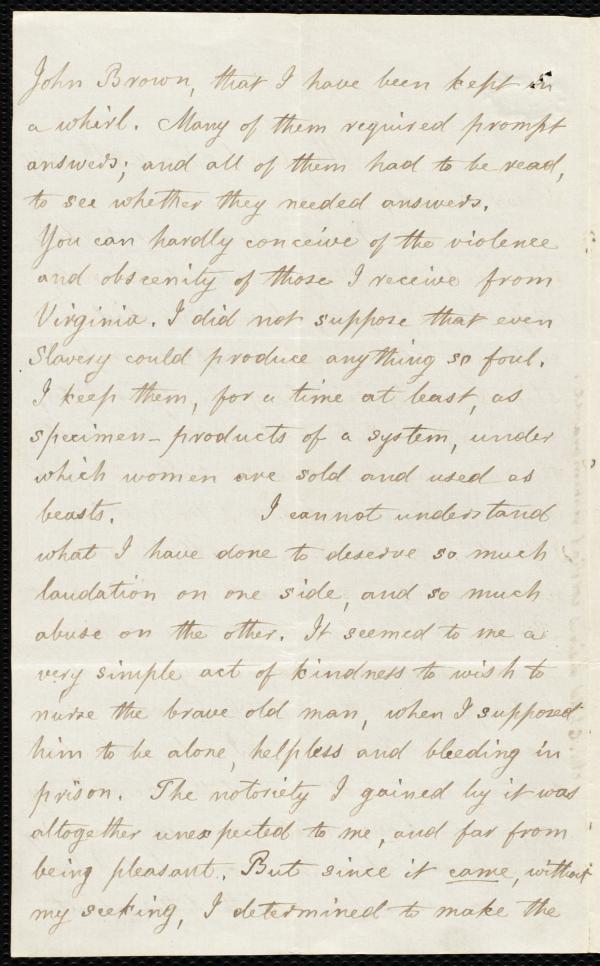 John Brown, that I have been kept in
a whirl. Many of them required prompt
answers; and all of them had to be read,
to see whether they needed answers.
You can hardly conceive of the violence
and obscenity of those I receive from
Virginia. I did not suppose that even
Slavery could produce anything so foul.
I keep them, for a time at least, as
specimen-products of a system, under
which women are sold and used as
beasts. I cannot understand
what I have done to deserve so much
laudation on one side, and so much
abuse on the other. It seemed to me a
very simple act of kindness to wish to
nurse the brave old man, when I supposed
him to be alone, helpless and bleeding in
prison. The notoriety I gained by it was
altogether unexpected to me, and far from
being pleasant. But since it came, without
my seeking, I determined to make the